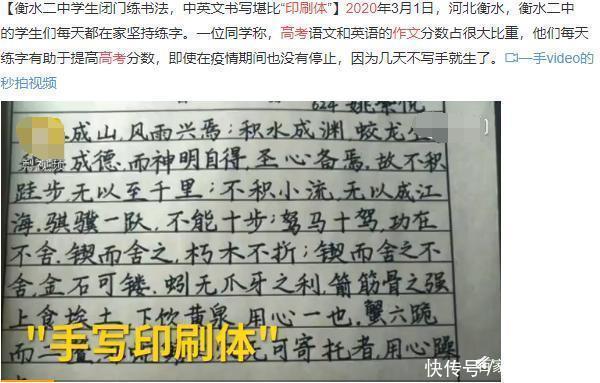 【衡水二中学生闭门练书法，中英文书写堪比“印刷体”】2020年3月1日，河北衡水，衡水二中
的学生们每天都在家坚持练字。一位同学称，高考语文和英语的作文分数占很大比重，他们每天
练字有助于提高高考分数，即使在疫情期间也没有停止，因为几天不写手就生了。一手video的
秒拍视频
624
成山,风雨兴焉;积水成渊,蛟龙
成德,而神明自得,圣心备焉,故不积
跬步,无以至千里;不积小流,无以成江
海,骐骥一队,不能十步;驽马十驾,功在
不舍,锲而舍之,朽木不折;锲而舍之不
舍,金石可镂.蚓无爪牙之利,箭筋骨之强
上食埃土,下饮黄泉,用心一也,蟹六跪
而二螯 可寄托者,用心躁
"手写印刷体"
视频
快传号/